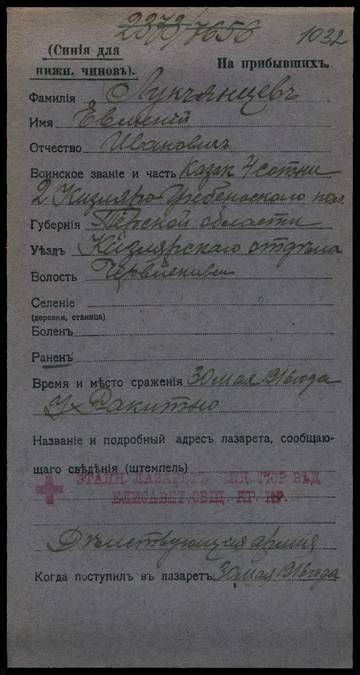 2373/7656 1032
(Синія для
нижн. чиновъ).
На прибывшихъ.
Фамилія Лукьянцевъ
Имя Евменій
Отчество Ивановичъ
Воинское званіе и часть Казакъ 4 сотни
2 Кизляро-Гребенского пол.
Губернія Терской области
Уѣздъ Кизлярскаго отдѣла
Волость Червленная
Селеніе
(деревня, станица)
Боленъ
Раненъ
Время и мѣсто сраженія 30 мая 1916 года
Ух Ракитно
Названіе и подробный адресъ лазарета, сообщаю-
щаго свѣдѣнія (штемпель)
ЭТАПН. ЛАЗАРЕТЪ
ЕЛИСАВЕТ. ОБЩ. КР. КР.
Дѣйствующая армія
Когда поступилъ въ лазаретъ 30 мая 1916 года